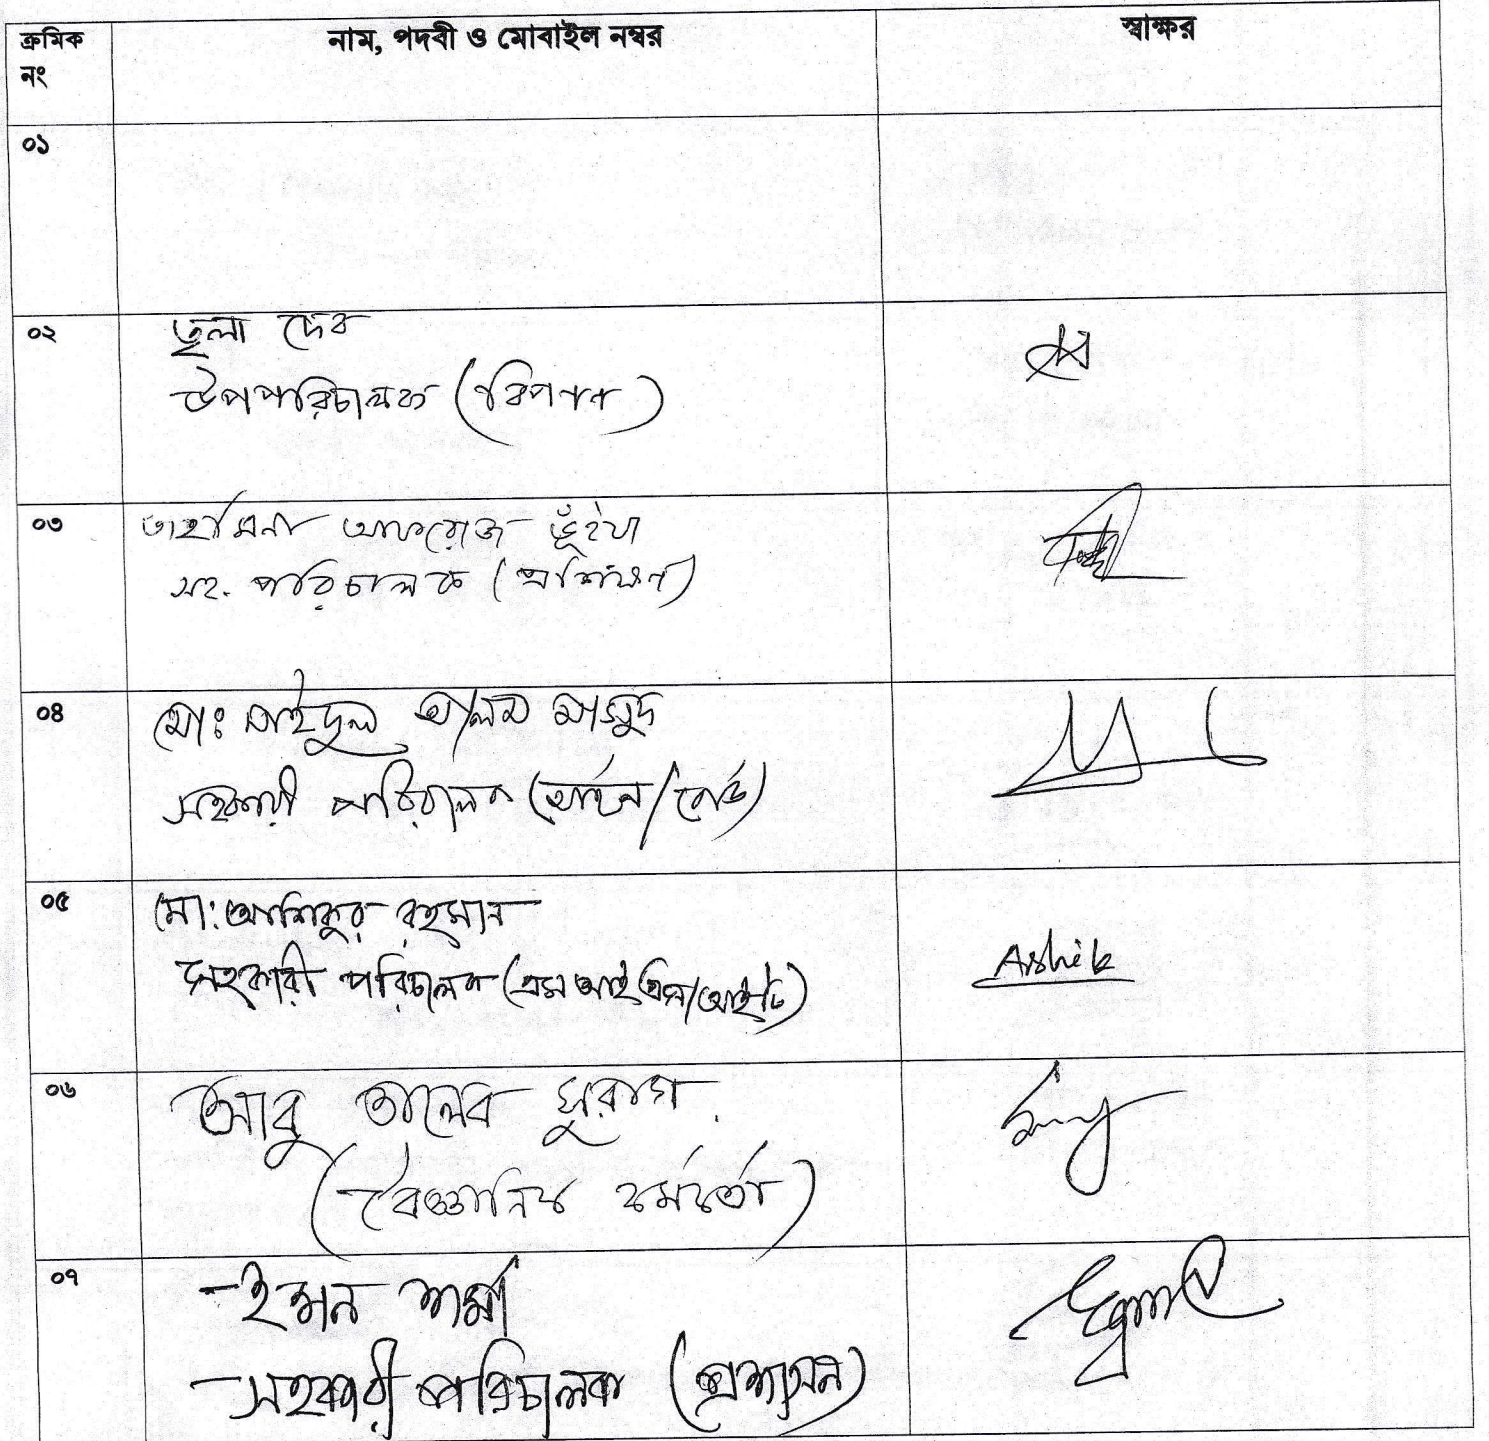 ক্রমিক নং
নাম, পদবী ও মোবাইল নম্বর
স্বাক্ষর
০১
০২
দেব
উপপরিচালক (বিপনন)
০৩
তাহমিনা আফরোজ ভূঁইয়া
সহ. পরিচালক (প্রশিক্ষণ)
০৪
মোঃ সাইদুল আলম মাসুদ
সহকারী পরিচালক (আইন/বোর্ড)
০৫
মো: আশিকুর রহমান
সহকারী পরিচালক (এমআইএস/আইটি)
Ashik
০৬
আবু তালেব সুরাগ
(বৈজ্ঞানিক কর্মকর্তা)
০৭
ইমন শর্মা
সহকারী পরিচালক (প্রশাসন)